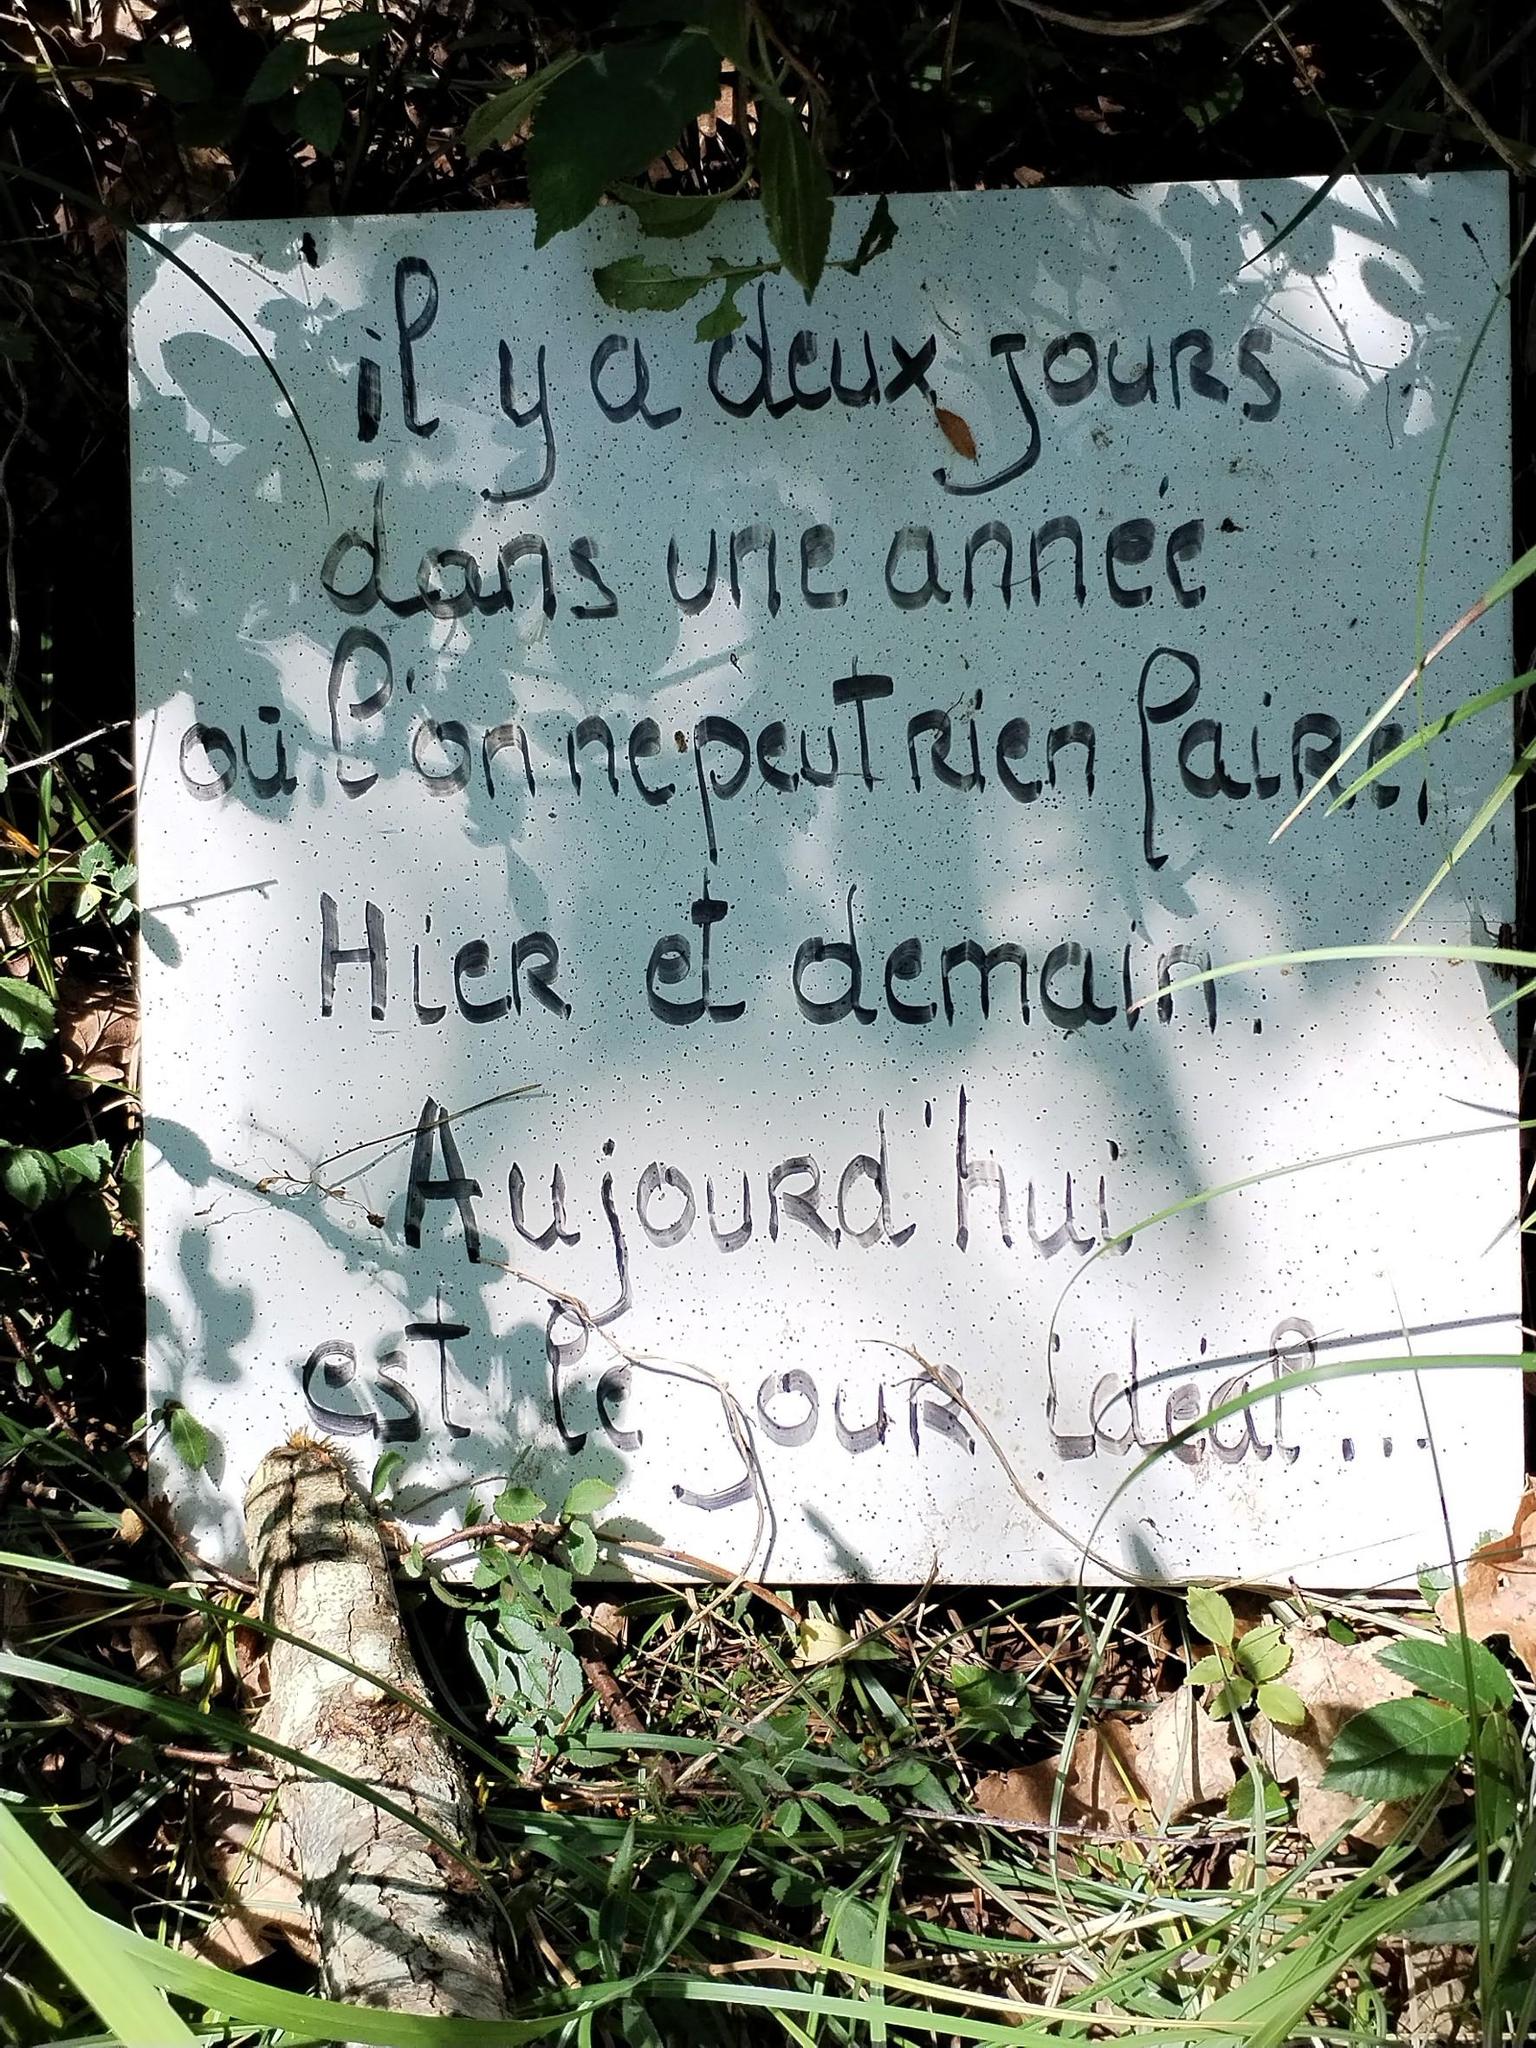 il y a deux jours
dans une année
où l'on ne peut rien faire,
Hier et demain.
Aujourd'hui
est le jour idéal...